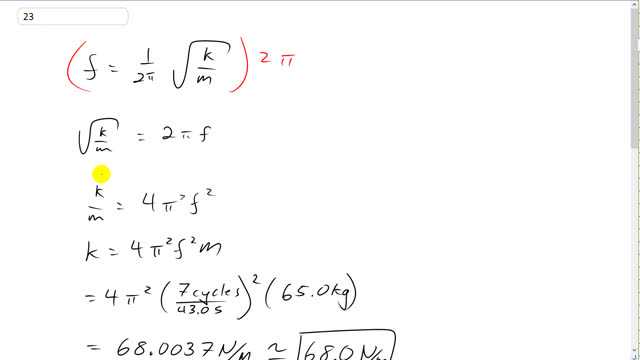 23
( f = 1/2π √(k/m) ) 2π
√(k/m) = 2πf
k/m = 4π²f²
k = 4π²f²m
= 4π² (7cycles/43.0s)² (65.0kg)
= 68.0037N/m ≈ 68.0N/m